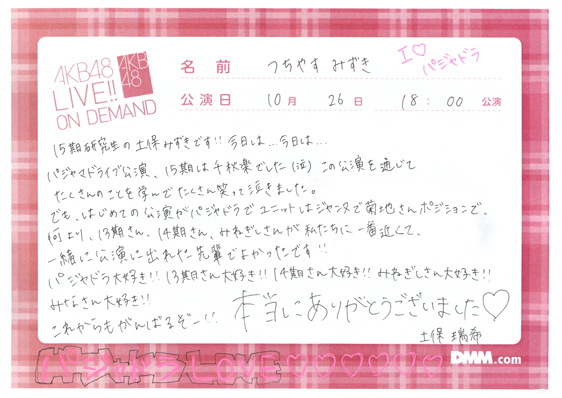 AKB48
LIVE!!
ON DEMAND
AKB
48
名前 つちやす みずき
I♡
パジャドラ
公演日 10月 26日 18:00 公演
15期研究生の土保みずきです!! 今日は...今日は...
パジャマドライブ公演、15期は千秋楽でした(泣) この公演を通じて
たくさんのことを学んでたくさん笑って泣きました。
でも、はじめての公演がパジャドラでユニットはジャンヌで菊地さんポジションで、
何より、13期さん、14期さん、みねぎしさんが私たちに一番近くて、
一緒に公演に出れた先輩でよかったです!!
パジャドラ大好き!! 13期さん大好き!! 14期さん大好き!! みねぎしさん大好き!!
みなさん大好き!!
これからもがんばるぞー!! 本当にありがとうございました♡
土保 瑞希
パジャドラLOVE♡♡♡♡♡♡
DMM.com